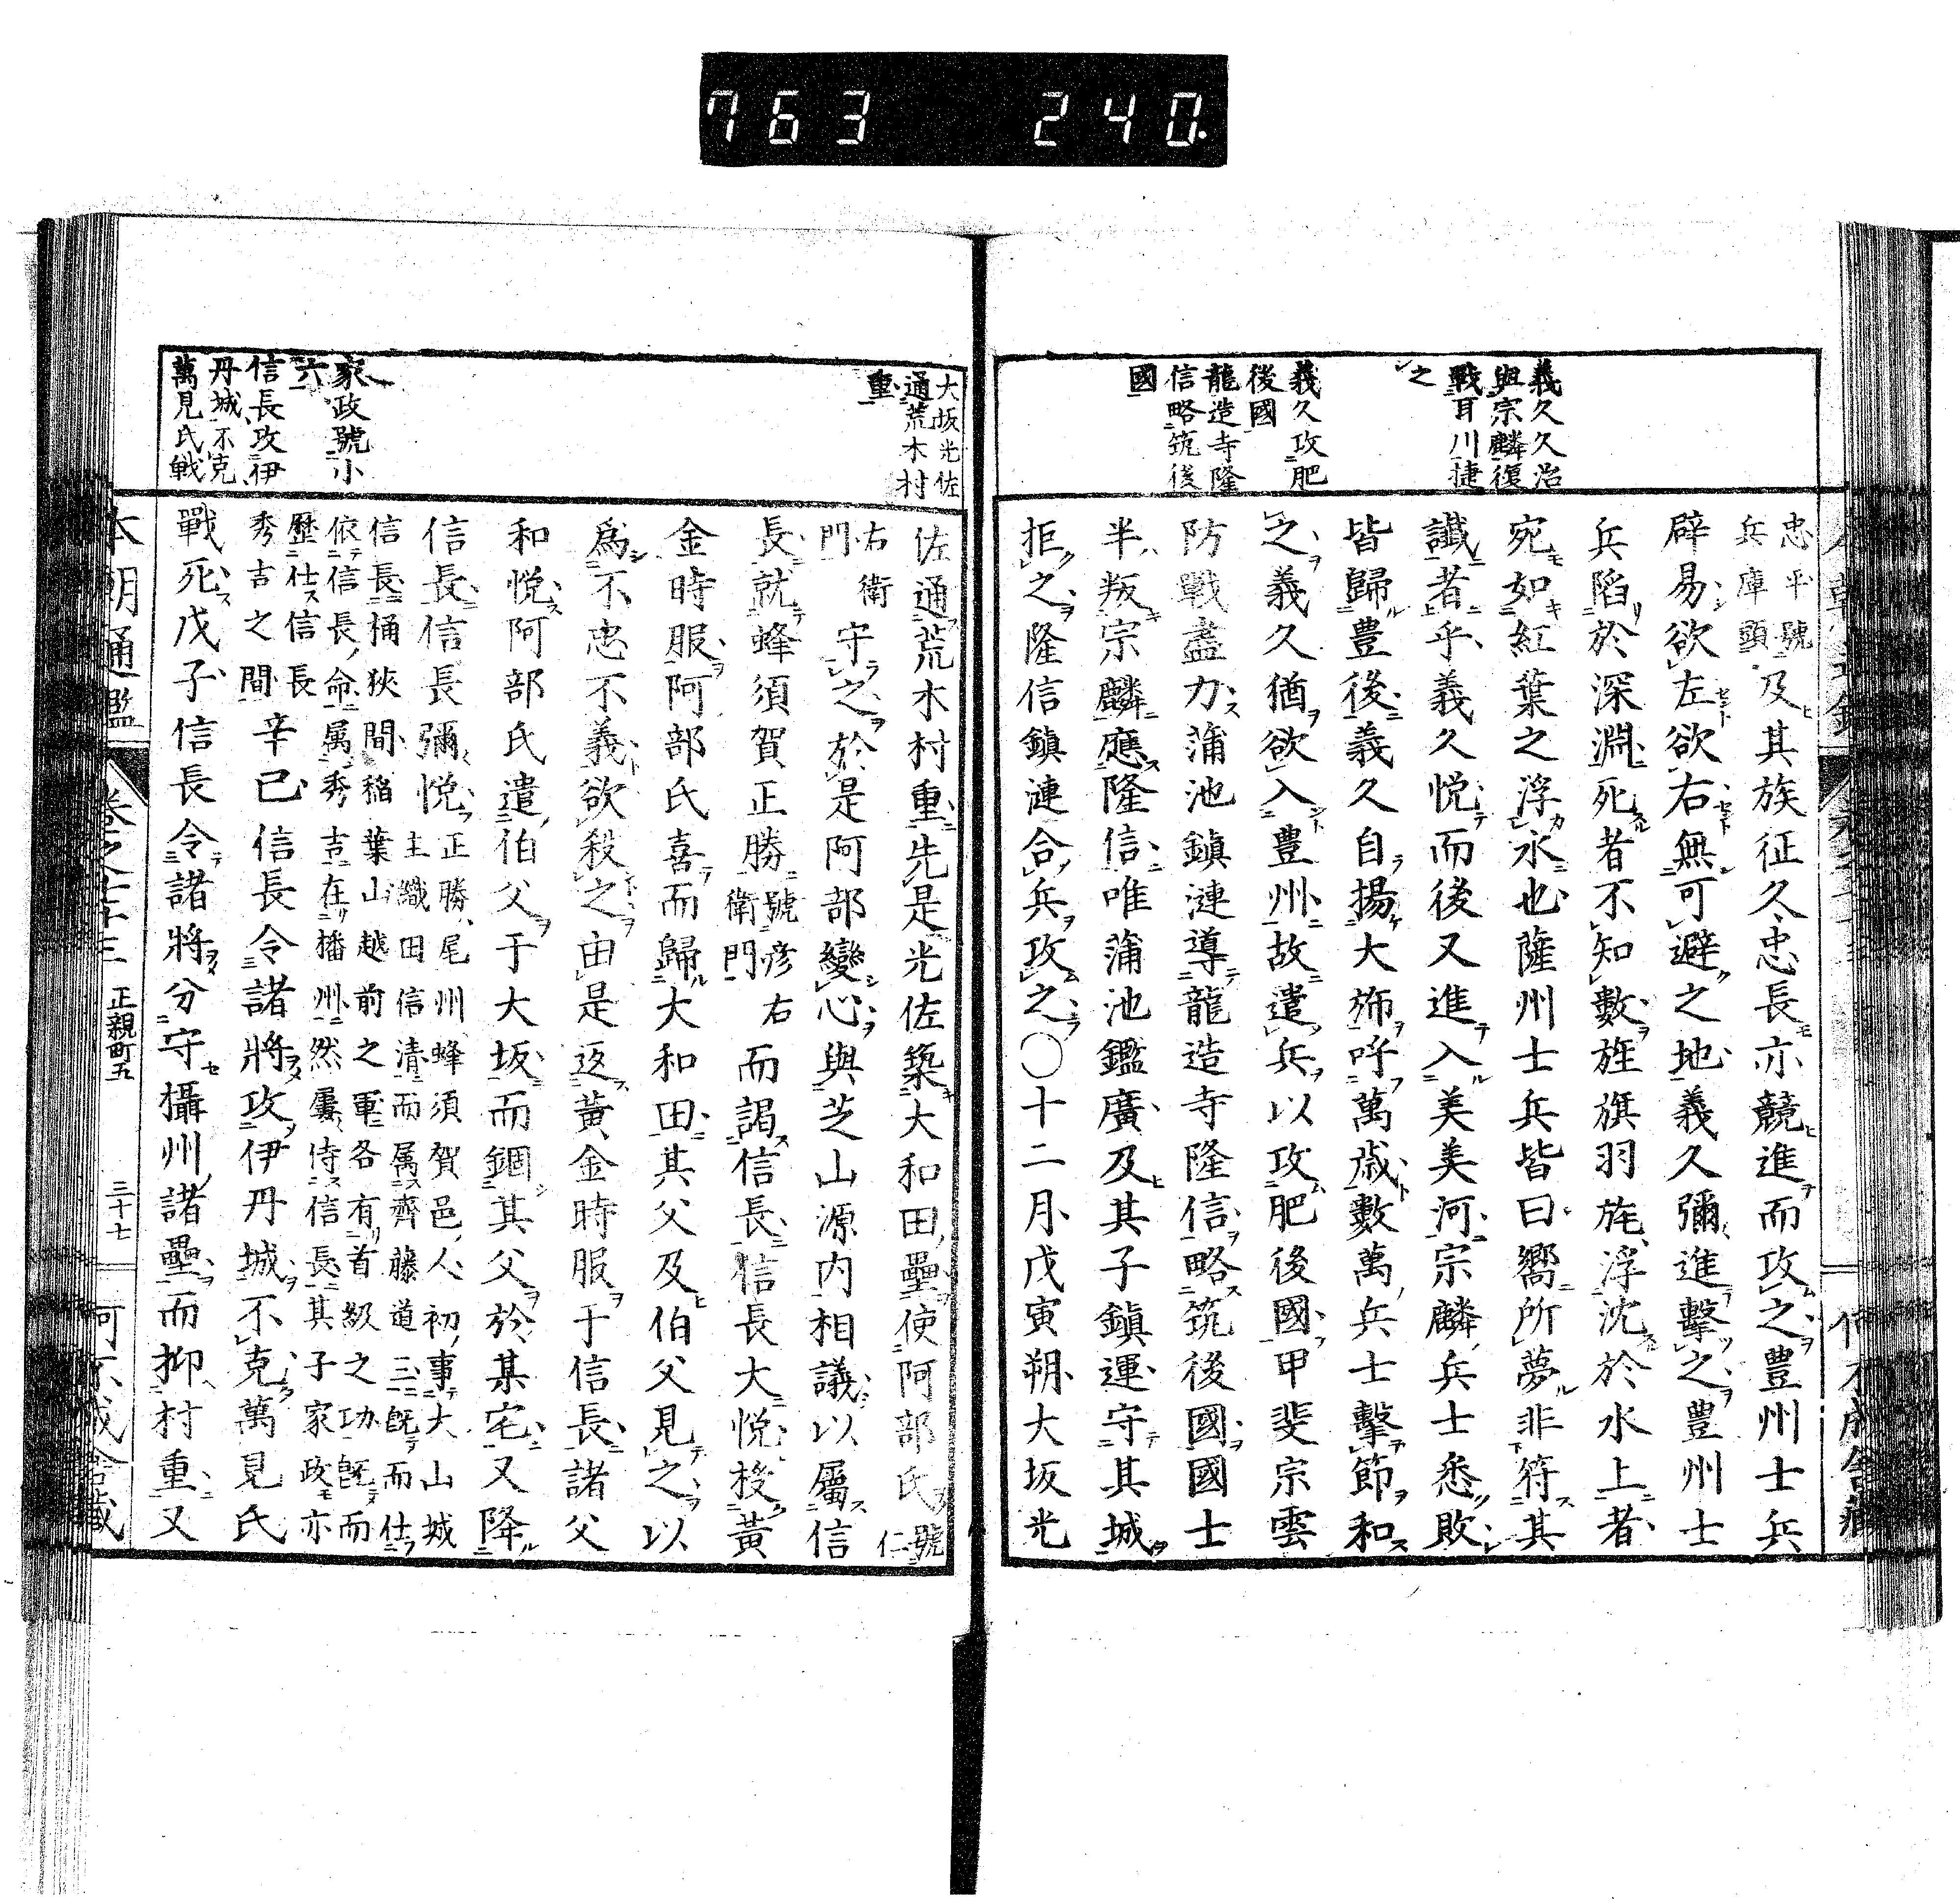 763 240.
義久久治
與宗麟復
戰耳川捷
之
義久攻肥
後國
龍造寺隆
信略筑後
國
忠平號
兵庫頭
及其族征久忠長亦競進而攻之豊州士兵
辟易欲左欲右無可避之地義久彌進擊之豊州士
兵陷於深淵死者不知數旌旗羽旄浮沈於水上者
宛如紅葉之浮水也薩州士兵皆曰嚮所夢非符其
讖者乎義久悦而後又進入美美河宗麟兵士悉敗
皆歸豊後義久自揚大斾呼萬歳數萬兵士擊節和
之義久猶欲入豊州故遣兵以攻肥後國甲斐宗雲
防戰盡力蒲池鎮漣導龍造寺隆信略筑後國國士
半叛宗麟應隆信唯蒲池鑑廣及其子鎮運守其城
拒之隆信鎮漣合兵攻之〇十二月戊寅朔大坂光
大坂光佐
通荒木村
重
家政號小
六
信長攻伊
丹城不克
萬見氏戰
佐通荒木村重先是光佐築大和田壘使阿部氏號仁
右衛
門
守之於是阿部變心與芝山源内相議以屬信
長就蜂須賀正勝號彦右
衛門
而謁信長信長大悦授黄
金時服阿部氏喜而歸大和田其父及伯父見之以
爲不忠不義欲殺之由是返黄金時服于信長諸父
和悦阿部氏遣伯父于大坂而錮其父於某宅又降
信長信長彌悦
正勝尾州蜂須賀邑人初事大山城
主織田信清而属齊藤道三既而仕
信長桶狹間稲葉山越前之軍各有首級之功既而
依信長命属秀吉在播州然屢侍信長其子家政亦
歷仕信長
秀吉之間
辛巳信長令諸將攻伊丹城不克萬見氏
戰死戊子信長令諸將分守攝州諸壘而抑村重又
本朝通鑑
卷之七十三
正親町五
三十七